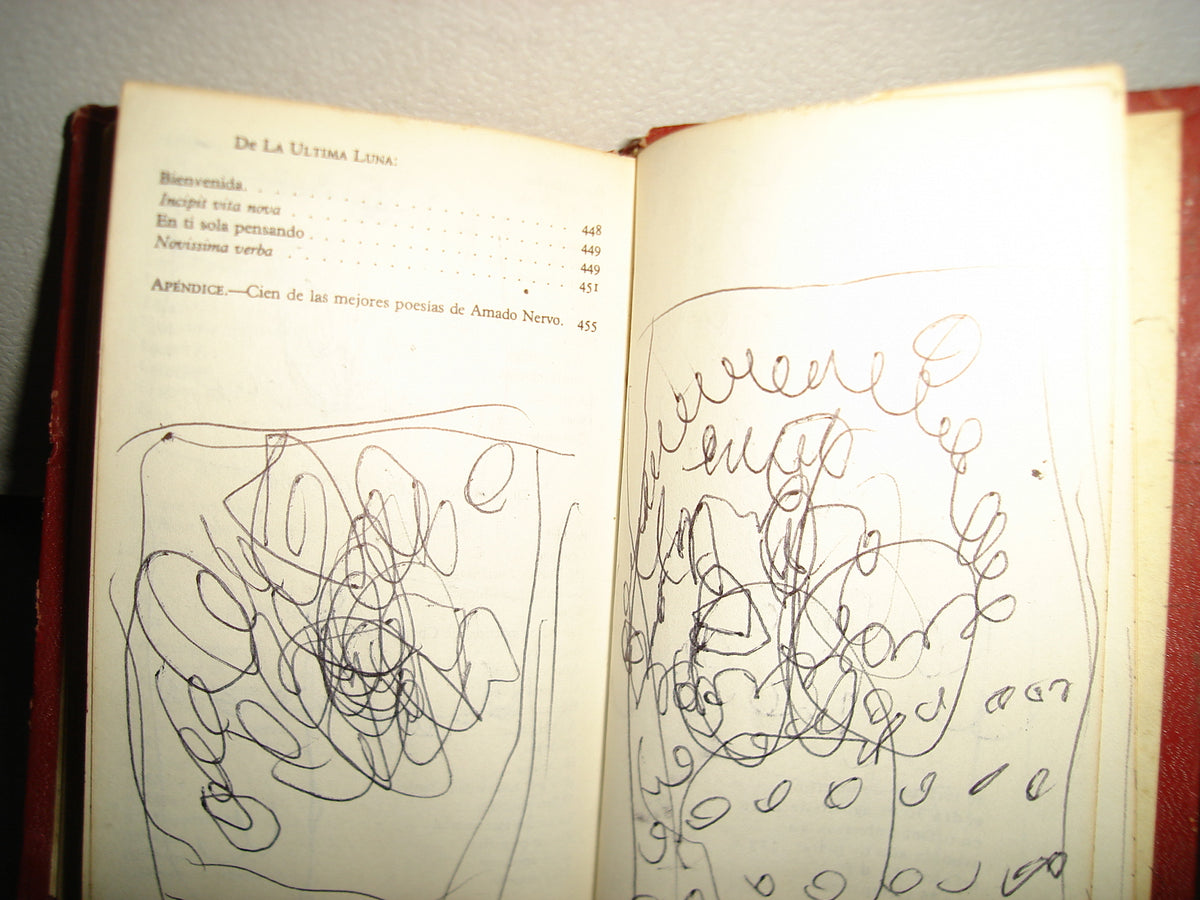 De La Ultima Luna:
Bienvenida. . . . . . . . . . . . . . . . . 448
Incipit vita nova . . . . . . . . . . . . . . . 449
En ti sola pensando . . . . . . . . . . . . . . 449
Novissima verba . . . . . . . . . . . . . . . 451
Apéndice.—Cien de las mejores poesías de Amado Nervo. 455